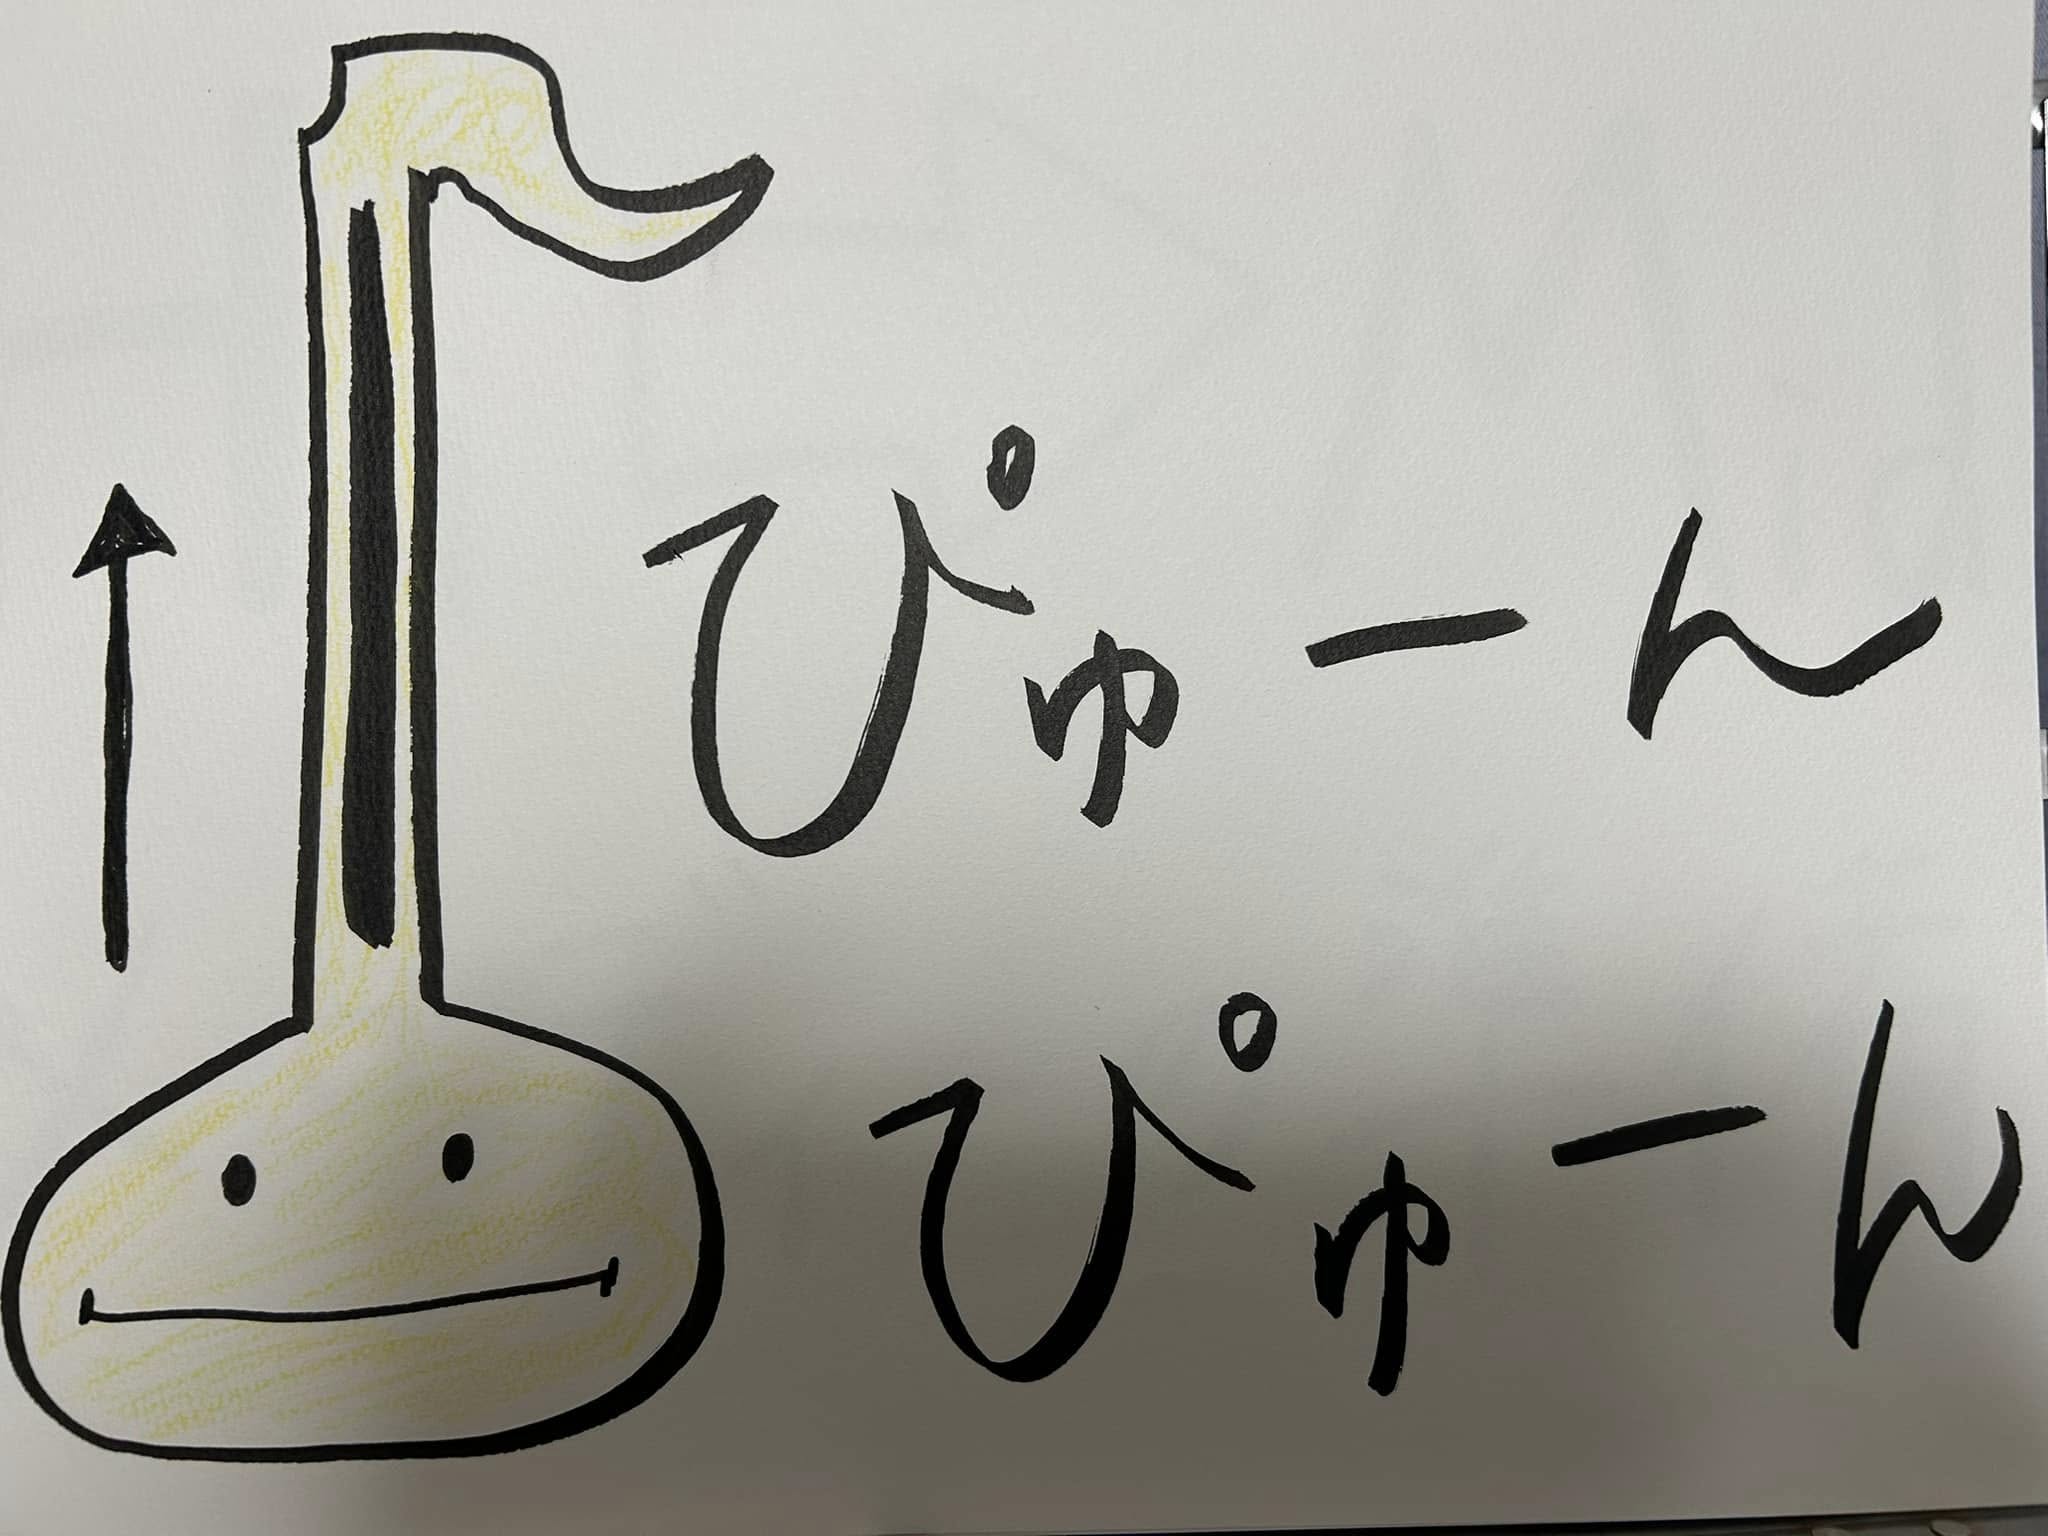 ぴゅーん
ぴゅーん